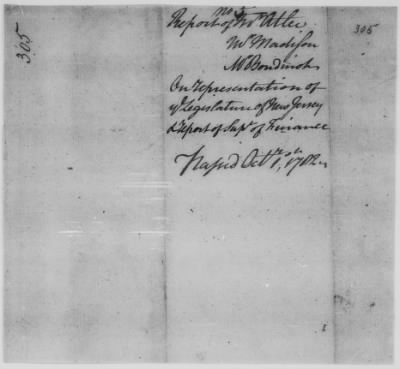 305
305
No 5
Report of Mr Atlee
Mr Madison
Mr Boudinot
On representation of
ye Legislature of New Jersey
& report of Supt of Finance
Passed Octr 1st, 1782